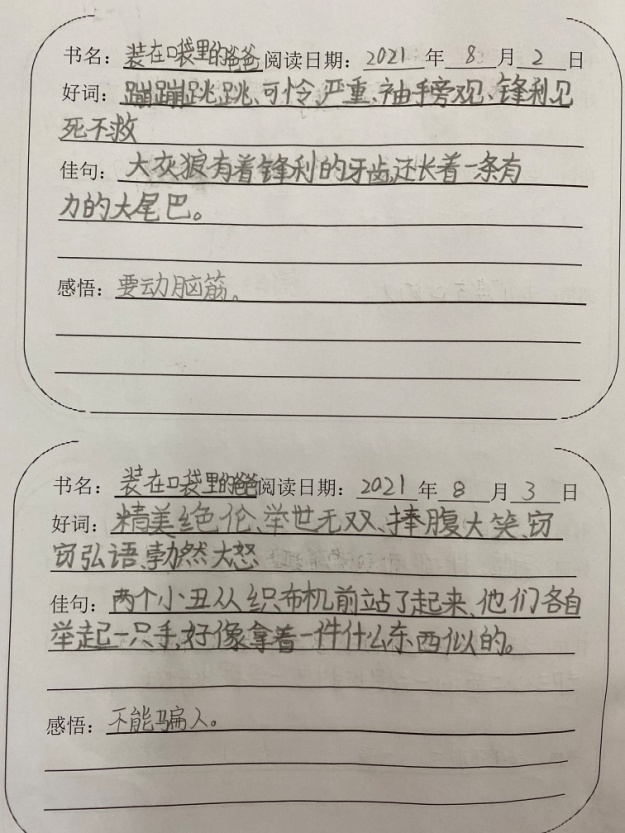 书名：装在口袋里的爸爸阅读日期：2021年8月2日
好词：蹦蹦跳跳、可怜、严重、袖手旁观、锋利见
死不救
佳句：大灰狼有着锋利的牙齿，还长着一条有
力的大尾巴。
感悟：要动脑筋。
书名：装在口袋里的爸爸阅读日期：2021年8月3日
好词：精美绝伦、举世无双、捧腹大笑、窃
窃弘语、勃然大怒
佳句：两个小丑从织布机前站了起来，他们各自
举起一只手，好像拿着一件什么东西似的。
感悟：不能骗人。